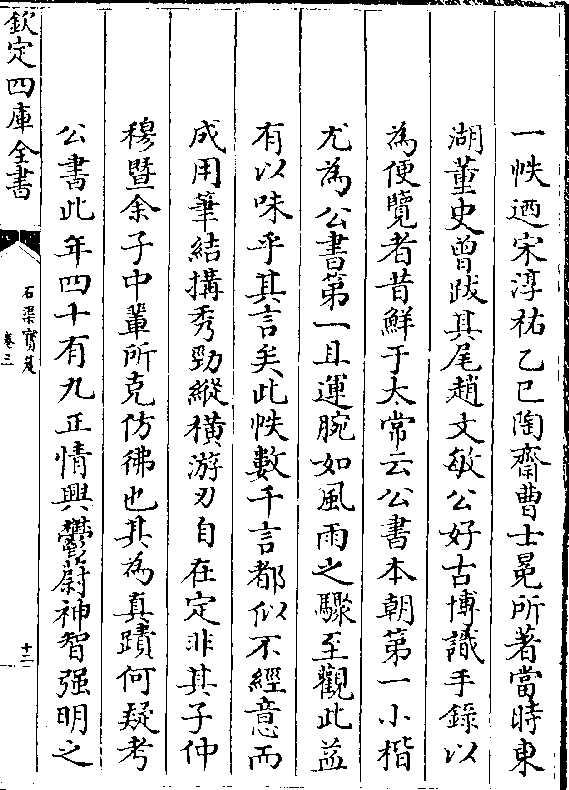 一帙迺宋淳祐乙巳陶齋曹士冕所著當時東
湖董史曾跋其尾趙文敏公好古博識手錄以
為便覽者昔鮮于太常云公書本朝第一小楷
尤為公書第一且運腕如風雨之驟至觀此益
有以味乎其言矣此帙數千言都似不經意而
成用筆結搆秀勁縱橫游刃自在定非其子仲
穆暨余子中輩所克仿彿也其為真蹟何疑考
公書此年四十有九正情興鬱蔚神智强明之
欽定四庫全書
石渠寶笈
卷三
十二